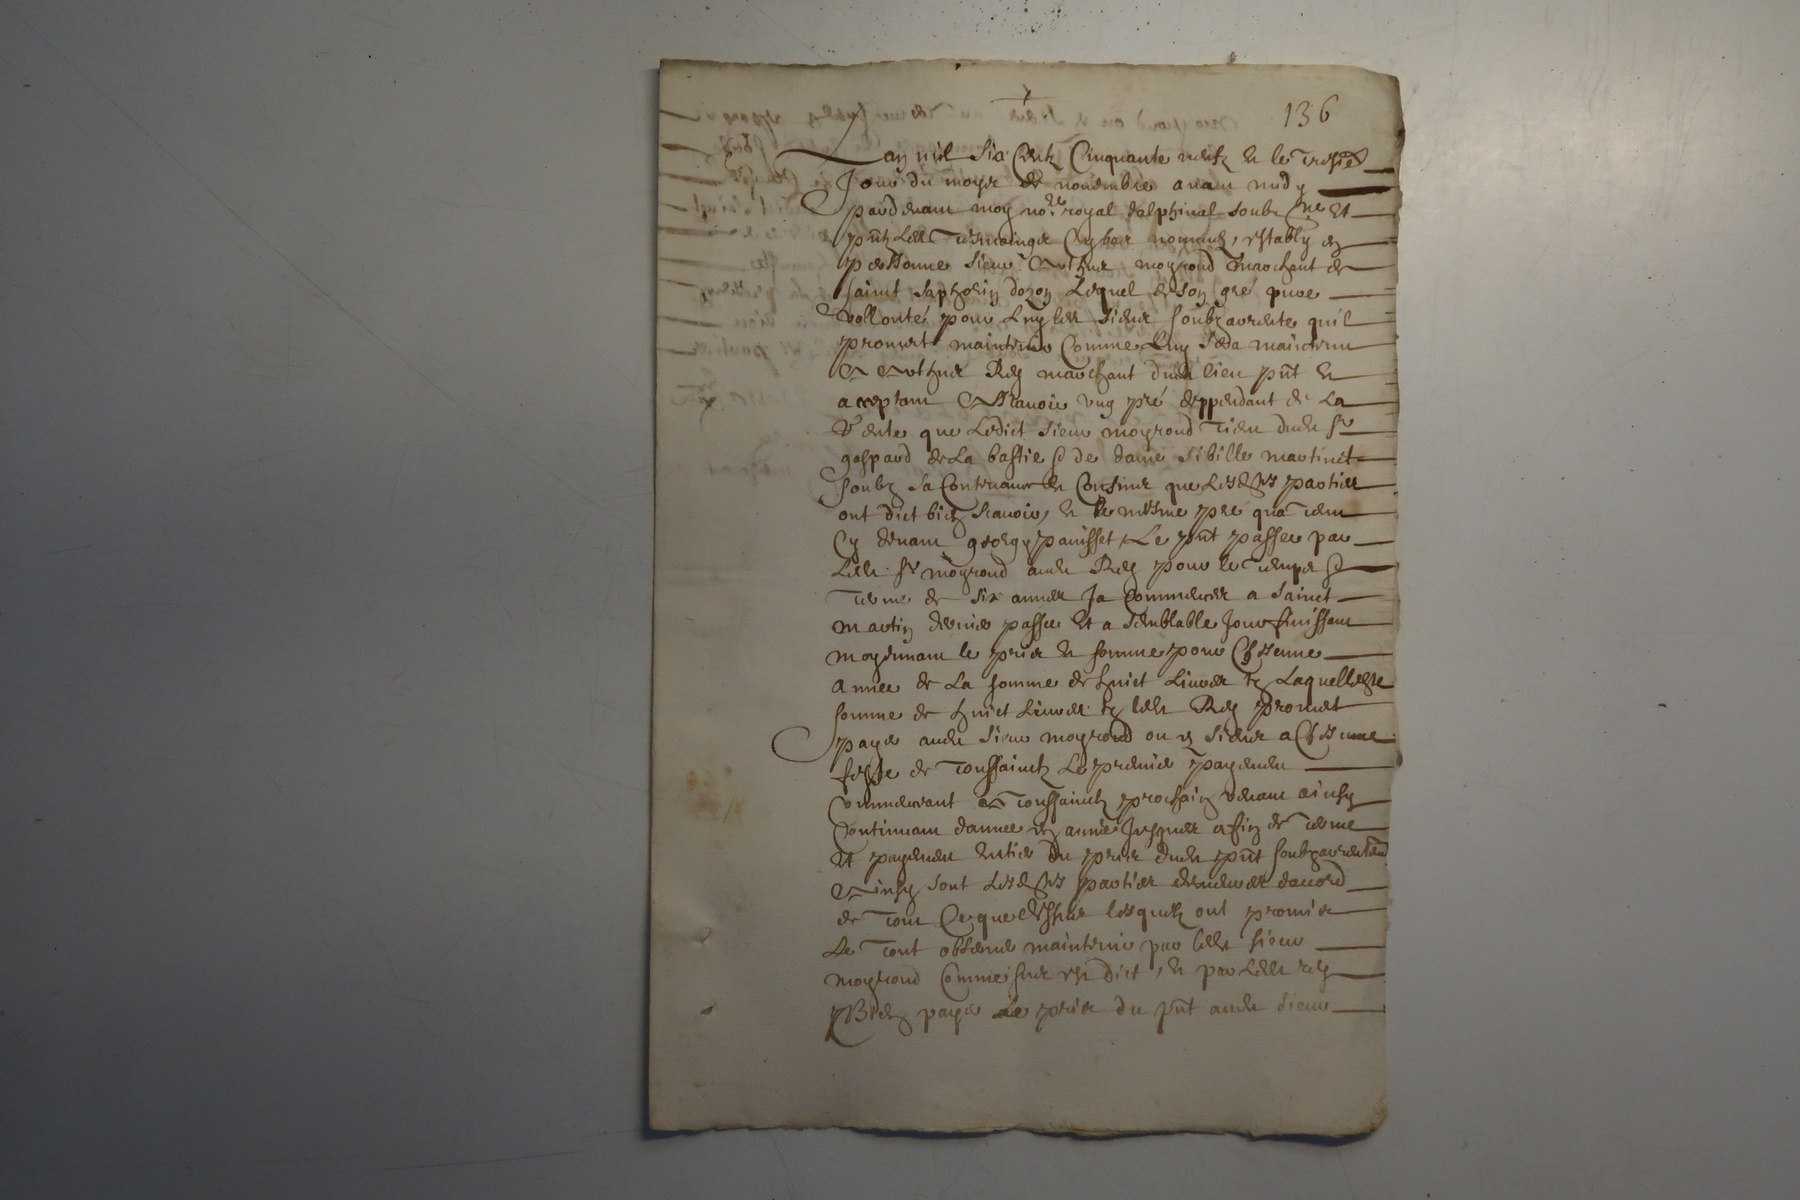 136
Lan mil six centz cinquante neufz et le tresie
Jour du moys de novembre avant midy
pardevant moy no.re royal dalphinal soubz.ne et
pñtz les tesmoings cy bas nommez, estably en
personne sieur Arthur moyroud marchant de
sainct saphorin dozon lequel de son gré pure
vollonté pour luy les siens soubzarrente quil
promet maintenir comme luy sera maintenu
A Arthur Rey marchant dudt lieu pñt et
acceptant Assavoir ung pré deppendant de la
vente que ledict sieur moyroud tient dudt sr
gaspard de la bastie & de dame sibille martinet
soubz sa contenance et confins que lesdes parties
ont dict bien scavoir, et le mesme pré qua tenu
cy devant george pauisset, Le pñt passée par
ledt sr moyroud audt Rey pour le temps &
terme de six annes ja commences a sainct
martin dernier passé et a semblable jour finissant
moyennant le pris et somme pour chascune
année de la somme de huict livres tz laquelle
somme de huict livres tz ledt Rey promet
payer audt sieur moyroud ou es siens a chascune
feste de toussainctz le premier payement
commencant a toussainctz prochain venant ainsy
continuant dannee en année jusques a fin de terme
et payement entier du pris dudt pñt soubzarrentemt
Ainsy sont lesdes parties demeures daccord
de tout ce que dessus lesquelz ont promis
le tout observer maintenir par ledt sieur
moyroud comme sus est dict, et par ledt rey
Bien payer le pris du pñt audt sieur